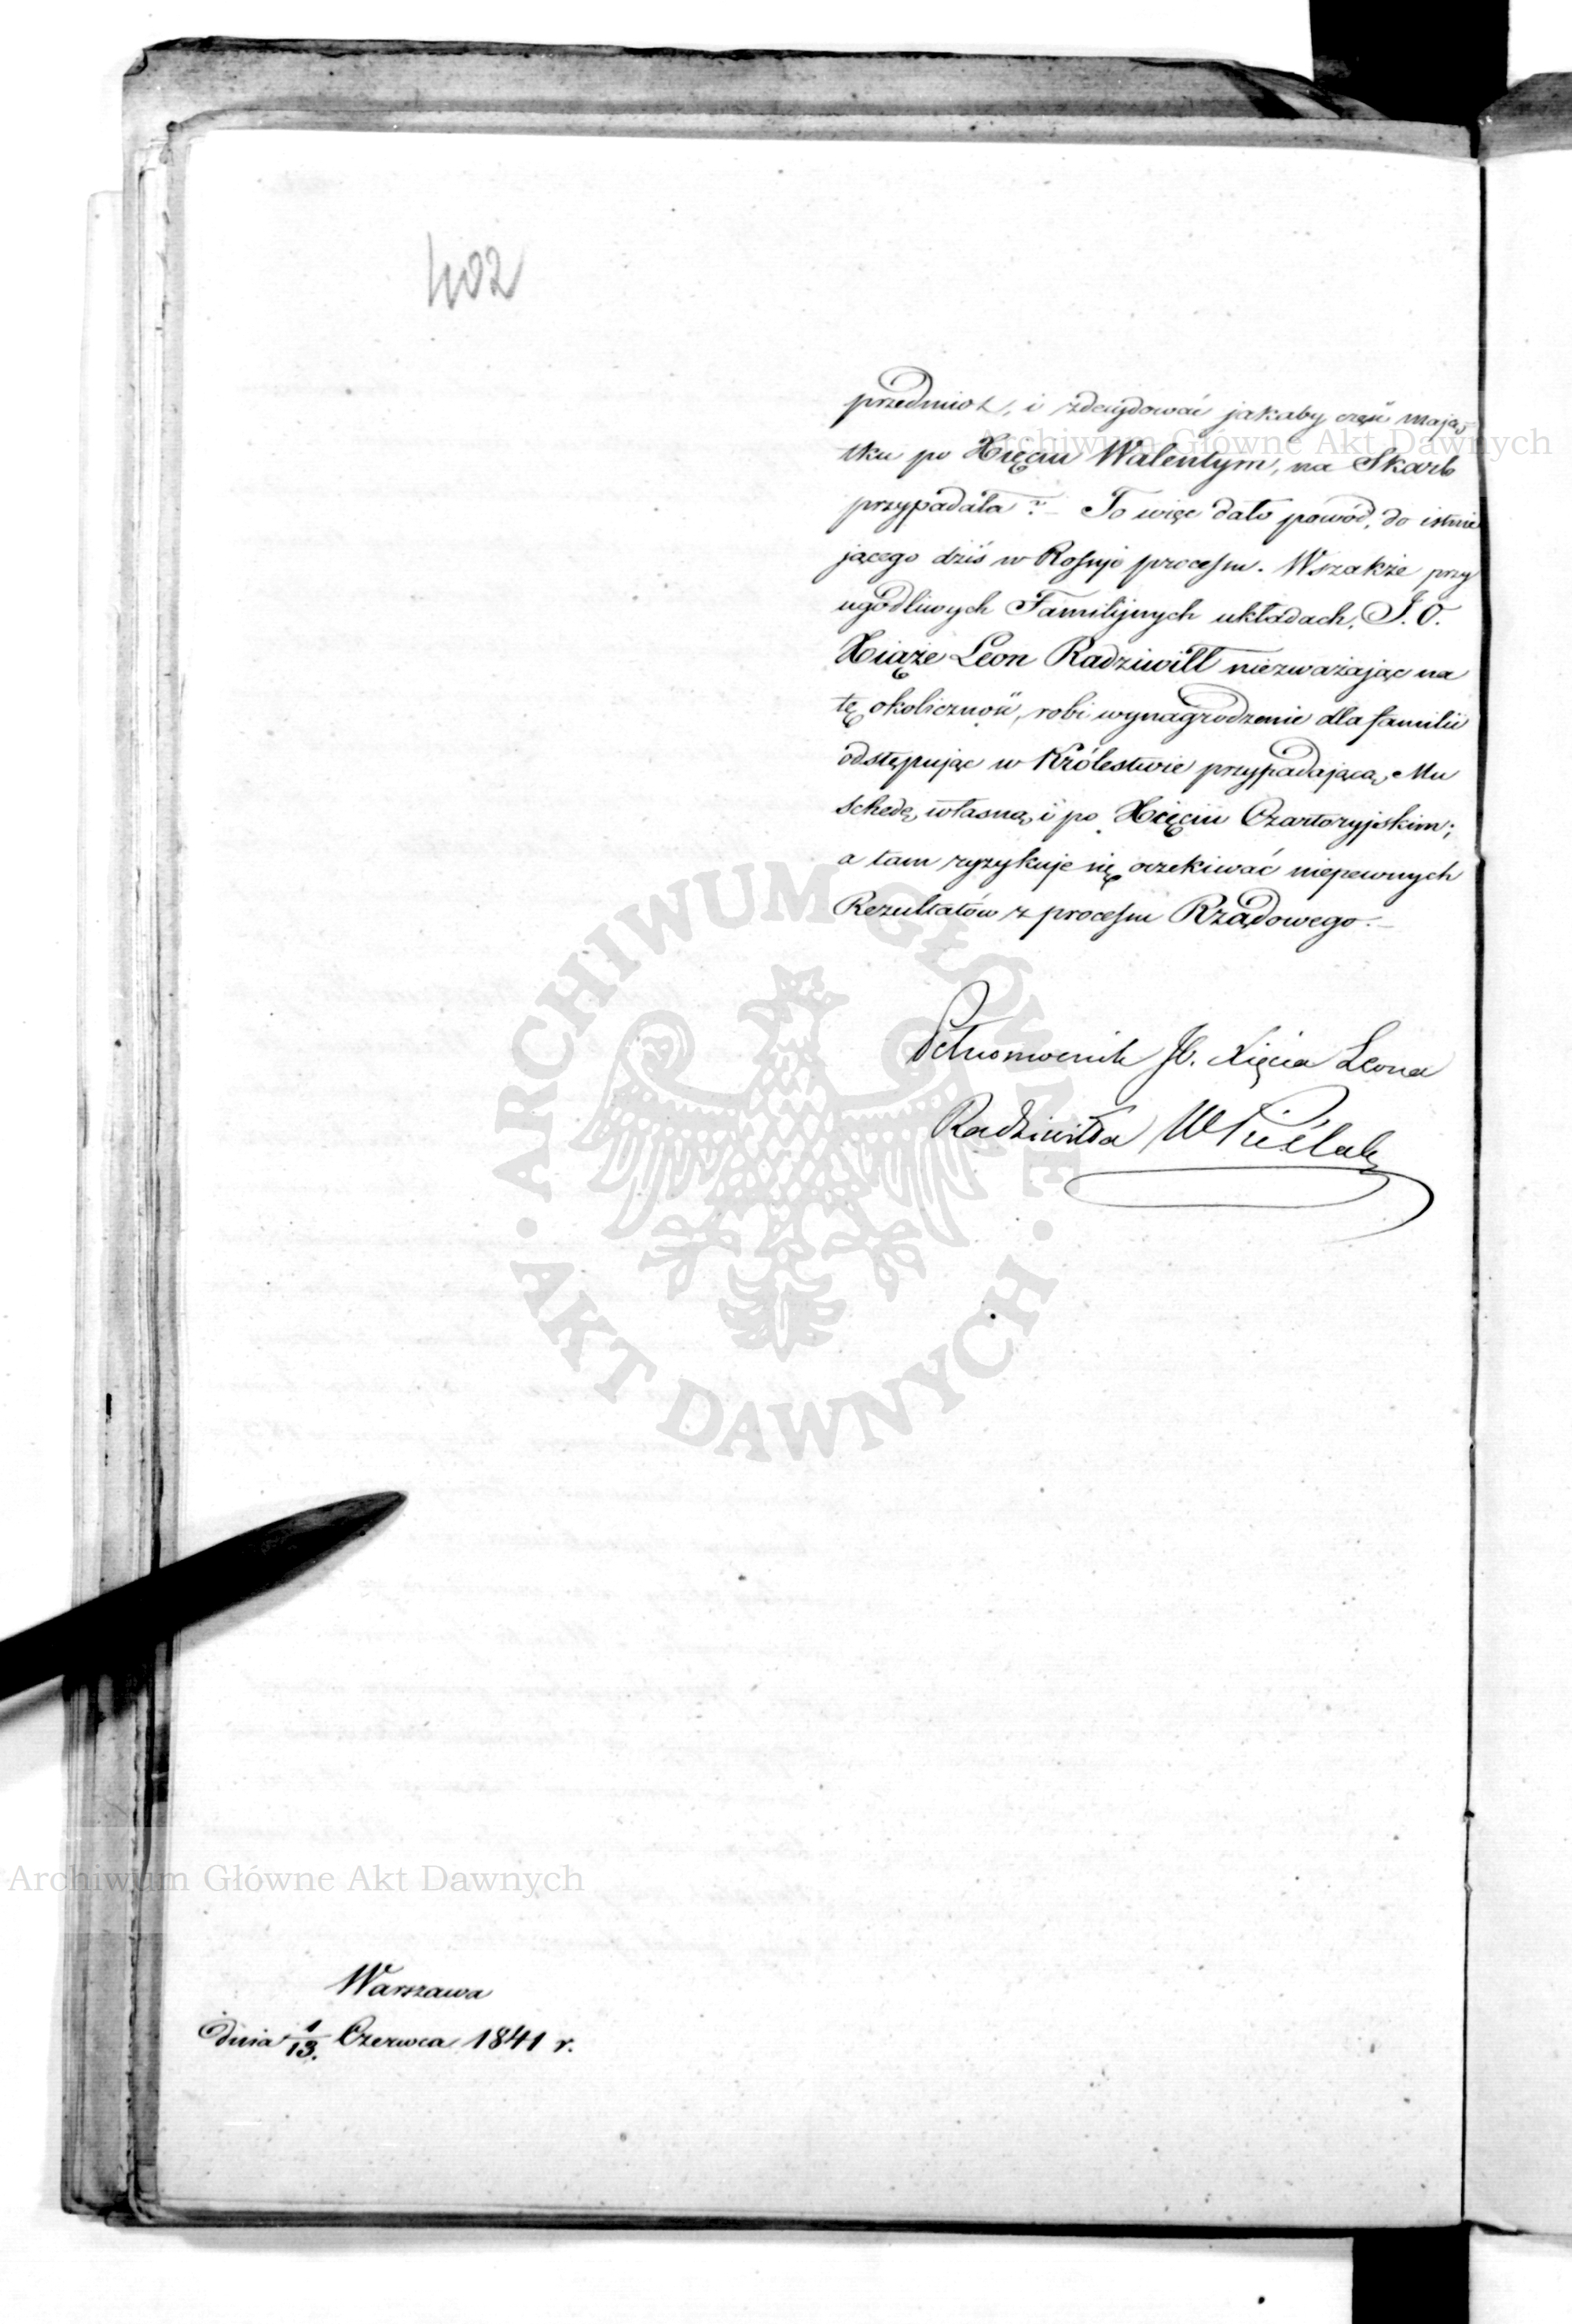 402
przedmiot, i zdecydować jakaby część mają-
tku po Xięciu Walentym, na Skarb
przypadała?— To więc dało powód, do istnie
jącego dziś w Rossyi processu. Wszakże przy
ugodliwych Familijnych układach, J. O.
Xiąże Leon Radziwiłł niezważając na
tę okoliczność, robi wynagrodzenie dla familii
odstępując w Królestwie przypadającą Mu
Schedę, własną i po Xięciu Czartoryjskim;
a tam ryzykuje się oczekiwać niepewnych
Rezultatów z processu Rządowego.—
Pełnomocnik JO. Xięcia Leona
Radziwiłła
Warszawa
dnia 1/13. Czerwca 1841 r.
ARCHIWUM GŁÓWNE
AKT DAWNYCH
Archiwum Główne Akt Dawnych
Archiwum Główne Akt Dawnych